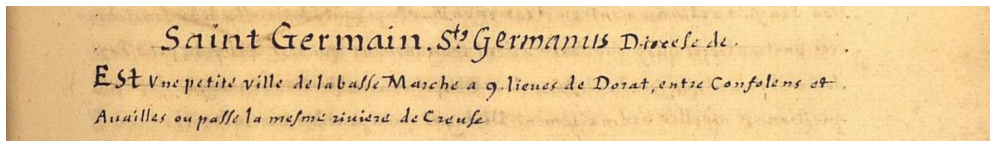 Saint Germain. Sts Germanus Diocese de.
Est Vne petite ville de la basse Marche a 9. lieues de Dorat, entre Confolens et
Auailles ou passe la mesme riuiere de Creuse